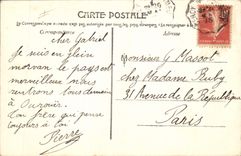 CARTE POSTALE
Adresse
cher Gabriel
Je suis en plein
morvan le pays est
merveilleux nous
rentrons tous demain
à Ouzouer.
ton frère qui pense
toujours à toi
Pierre
Monsieur G Massot
chez Madame Buby
31 Avenue de la République
Paris